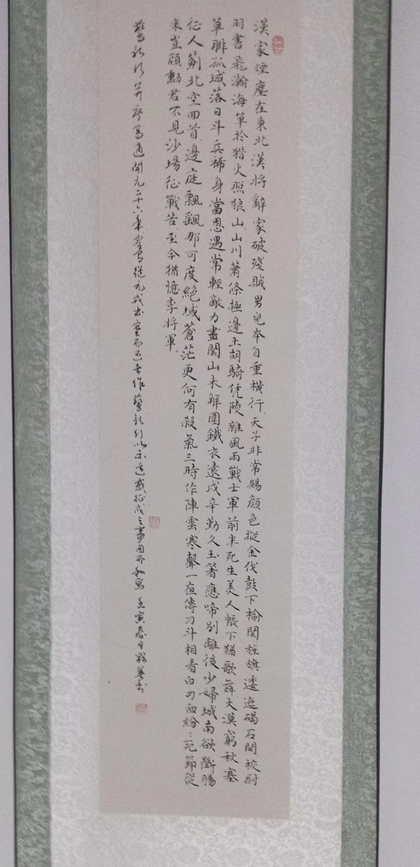 漢家煙塵在東北漢將辭家破殘賊男兒本自重橫行天子非常賜顏色摐金伐鼓下榆関旌旗逶迤碣石間校尉
羽書飛瀚海單於獵火照狼山山川蕭條極邊土胡騎凭陵雜風雨戰士軍前半死生美人帳下猶歌舞大漠窮秋塞
草腓孤城落日斗兵稀身當恩遇常輕敵力盡関山未解圍鐵衣遠戍辛勤久玉箸應啼別離後少婦城南欲斷腸
征人薊北空回首邊庭飄颻那可度絕域蒼茫更何有殺氣三時作陣雲寒聲一夜傳刁斗相看白刃血紛紛死節從
來豈顧勳君不見沙場征戰苦至今猶憶李將軍
燕歌行并序高適開元二十六年客有從元戎出塞而還者作燕歌行以示適感征戍之事因而和焉 壬寅春日書